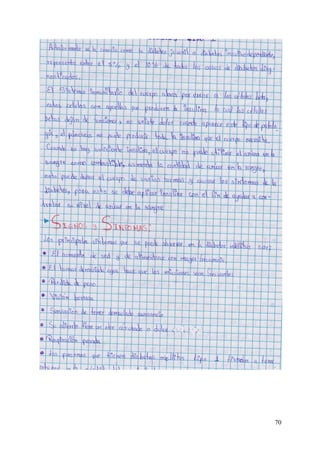 Actualmente se la conoce como la diabetes juvenil o diabetes insulinodependiente,
representa entre el 5% y el 10% de todos los casos de diabetes diag-
nosticados.
El Sistema Inmunitario del cuerpo ataca por error a las células beta,
estas células son aquellas que producen la Insulina lo cual las células
betas dejan de funcionar, no existe dolor cuando aparece este tipo de patolo-
gía, el páncreas no puede producir toda la Insulina que el cuerpo necesita.
Cuando no hay suficiente Insulina, el cuerpo no puede utilizar el azúcar en la
sangre como combustible, aumenta la cantidad de azúcar en la sangre,
esto puede dañar el cuerpo de muchas formas y causar los síntomas de la
diabetes, para esto se debe aplicar Insulina con el fin de ayudar a con-
trolar su nivel de azúcar en la sangre
SIGNOS y SÍNTOMAS:
Los principales síntomas que se puede observar en la diabetes mellitus son:
• El aumento de sed y de alimentarse con mayor frecuencia.
• El tomar demasiada agua hace que las micciones sean frecuentes.
• Pérdida de peso
• Visión borrosa
• Sensación de tener demasiado cansancio
• Su aliento tiene un olor
• Respiración pesada
• Las personas que tienen diabetes mellitus tipo 1 tienden a tener
70